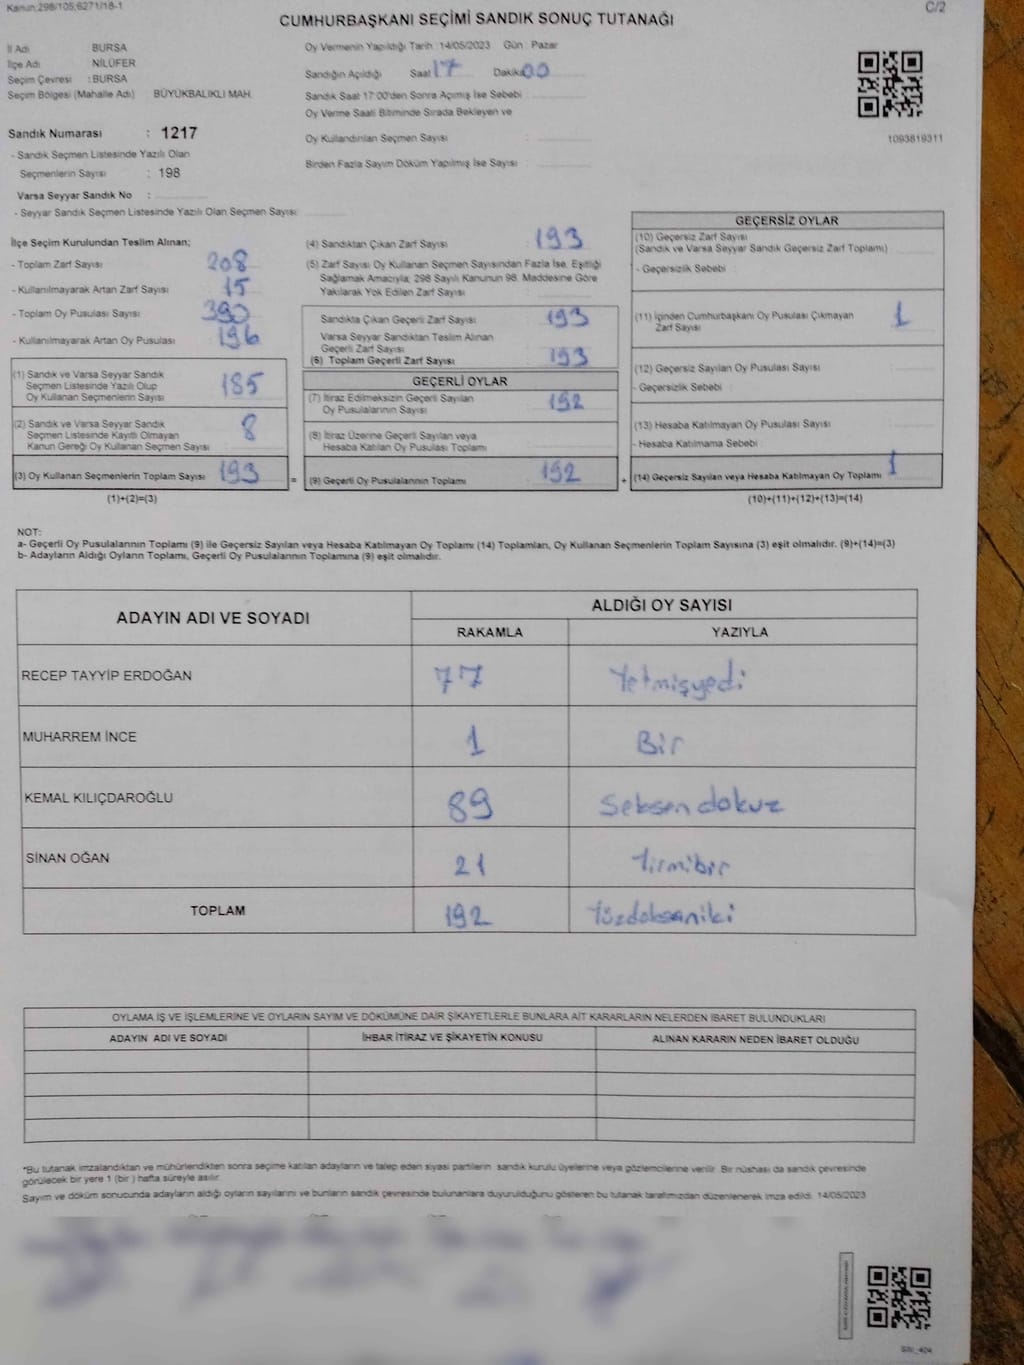 Kanun;298/105;6271/18-1
C/2
CUMHURBAŞKANI SEÇİMİ SANDIK SONUÇ TUTANAĞI
İl Adı BURSA
İlçe Adı NİLÜFER
Seçim Çevresi : BURSA
Seçim Bölgesi (Mahalle Adı) BÜYÜKBALIKLI MAH.
Sandık Numarası : 1217
- Sandık Seçmen Listesinde Yazılı Olan
Seçmenlerin Sayısı : 198
Varsa Seyyar Sandık No :
- Seyyar Sandık Seçmen Listesinde Yazılı Olan Seçmen Sayısı:
Oy Vermenin Yapıldığı Tarih : 14/05/2023 Gün : Pazar
Sandığın Açıldığı Saat 17 Dakika 00
Sandık Saat 17:00'den Sonra Açılmış İse Sebebi :
Oy Verme Saati Bitiminde Sırada Bekleyen ve
Oy Kullandırılan Seçmen Sayısı :
Birden Fazla Sayım Döküm Yapılmış İse Sayısı :
1093819311
İlçe Seçim Kurulundan Teslim Alınan;
- Toplam Zarf Sayısı 208
- Kullanılmayarak Artan Zarf Sayısı 15
- Toplam Oy Pusulası Sayısı 390
- Kullanılmayarak Artan Oy Pusulası 196
(1) Sandık ve Varsa Seyyar Sandık
Seçmen Listesinde Yazılı Olup
Oy Kullanan Seçmenlerin Sayısı 185
(2) Sandık ve Varsa Seyyar Sandık
Seçmen Listesinde Kayıtlı Olmayan
Kanun Gereği Oy Kullanan Seçmen Sayısı 8
(3) Oy Kullanan Seçmenlerin Toplam Sayısı 193 =
(1)+(2)=(3)
(4) Sandıktan Çıkan Zarf Sayısı 193
(5) Zarf Sayısı Oy Kullanan Seçmen Sayısından Fazla İse, Eşitliği
Sağlamak Amacıyla; 298 Sayılı Kanunun 98. Maddesine Göre
Yakılarak Yok Edilen Zarf Sayısı
Sandıkta Çıkan Geçerli Zarf Sayısı 193
Varsa Seyyar Sandıktan Teslim Alınan
Geçerli Zarf Sayısı
(6) Toplam Geçerli Zarf Sayısı 193
GEÇERLİ OYLAR
(7) İtiraz Edilmeksizin Geçerli Sayılan
Oy Pusulalarının Sayısı 192
(8) İtiraz Üzerine Geçerli Sayılan veya
Hesaba Katılan Oy Pusulası Toplamı
(9) Geçerli Oy Pusulalarının Toplamı 192 +
GEÇERSİZ OYLAR
(10) Geçersiz Zarf Sayısı
(Sandık ve Varsa Seyyar Sandık Geçersiz Zarf Toplamı)
- Geçersizlik Sebebi :
(11) İçinden Cumhurbaşkanı Oy Pusulası Çıkmayan
Zarf Sayısı 1
(12) Geçersiz Sayılan Oy Pusulası Sayısı
- Geçersizlik Sebebi :
(13) Hesaba Katılmayan Oy Pusulası Sayısı
- Hesaba Katılmama Sebebi :
(14) Geçersiz Sayılan veya Hesaba Katılmayan Oy Toplamı 1
(10)+(11)+(12)+(13)=(14)
NOT:
a- Geçerli Oy Pusulalarının Toplamı (9) ile Geçersiz Sayılan veya Hesaba Katılmayan Oy Toplamı (14) Toplamları, Oy Kullanan Seçmenlerin Toplam Sayısına (3) eşit olmalıdır. (9)+(14)=(3)
b- Adayların Aldığı Oyların Toplamı, Geçerli Oy Pusulalarının Toplamına (9) eşit olmalıdır.
ADAYIN ADI VE SOYADI
ALDIĞI OY SAYISI
RAKAMLA YAZIYLA
RECEP TAYYİP ERDOĞAN 77 Yetmişyedi
MUHARREM İNCE 1 Bir
KEMAL KILIÇDAROĞLU 89 Seksendokuz
SİNAN OĞAN 21 Yirmibir
TOPLAM 192 Yüzdoksaniki
OYLAMA İŞ VE İŞLEMLERİNE VE OYLARIN SAYIM VE DÖKÜMÜNE DAİR ŞİKAYETLERLE BUNLARA AİT KARARLARIN NELERDEN İBARET BULUNDUKLARI
ADAYIN ADI VE SOYADI İHBAR İTİRAZ VE ŞİKAYETİN KONUSU ALINAN KARARIN NEDEN İBARET OLDUĞU
*Bu tutanak imzalandıktan ve mühürlendikten sonra seçime katılan adayların ve talep eden siyasi partilerin sandık kurulu üyelerine veya gözlemcilerine verilir. Bir nüshası da sandık çevresinde
görülecek bir yere 1 (bir ) hafta süreyle asılır.
Sayım ve döküm sonucunda adayların aldığı oyların sayılarını ve bunların sandık çevresinde bulunanlara duyurulduğunu gösteren bu tutanak tarafımızdan düzenlenerek imza edildi. 14/05/2023